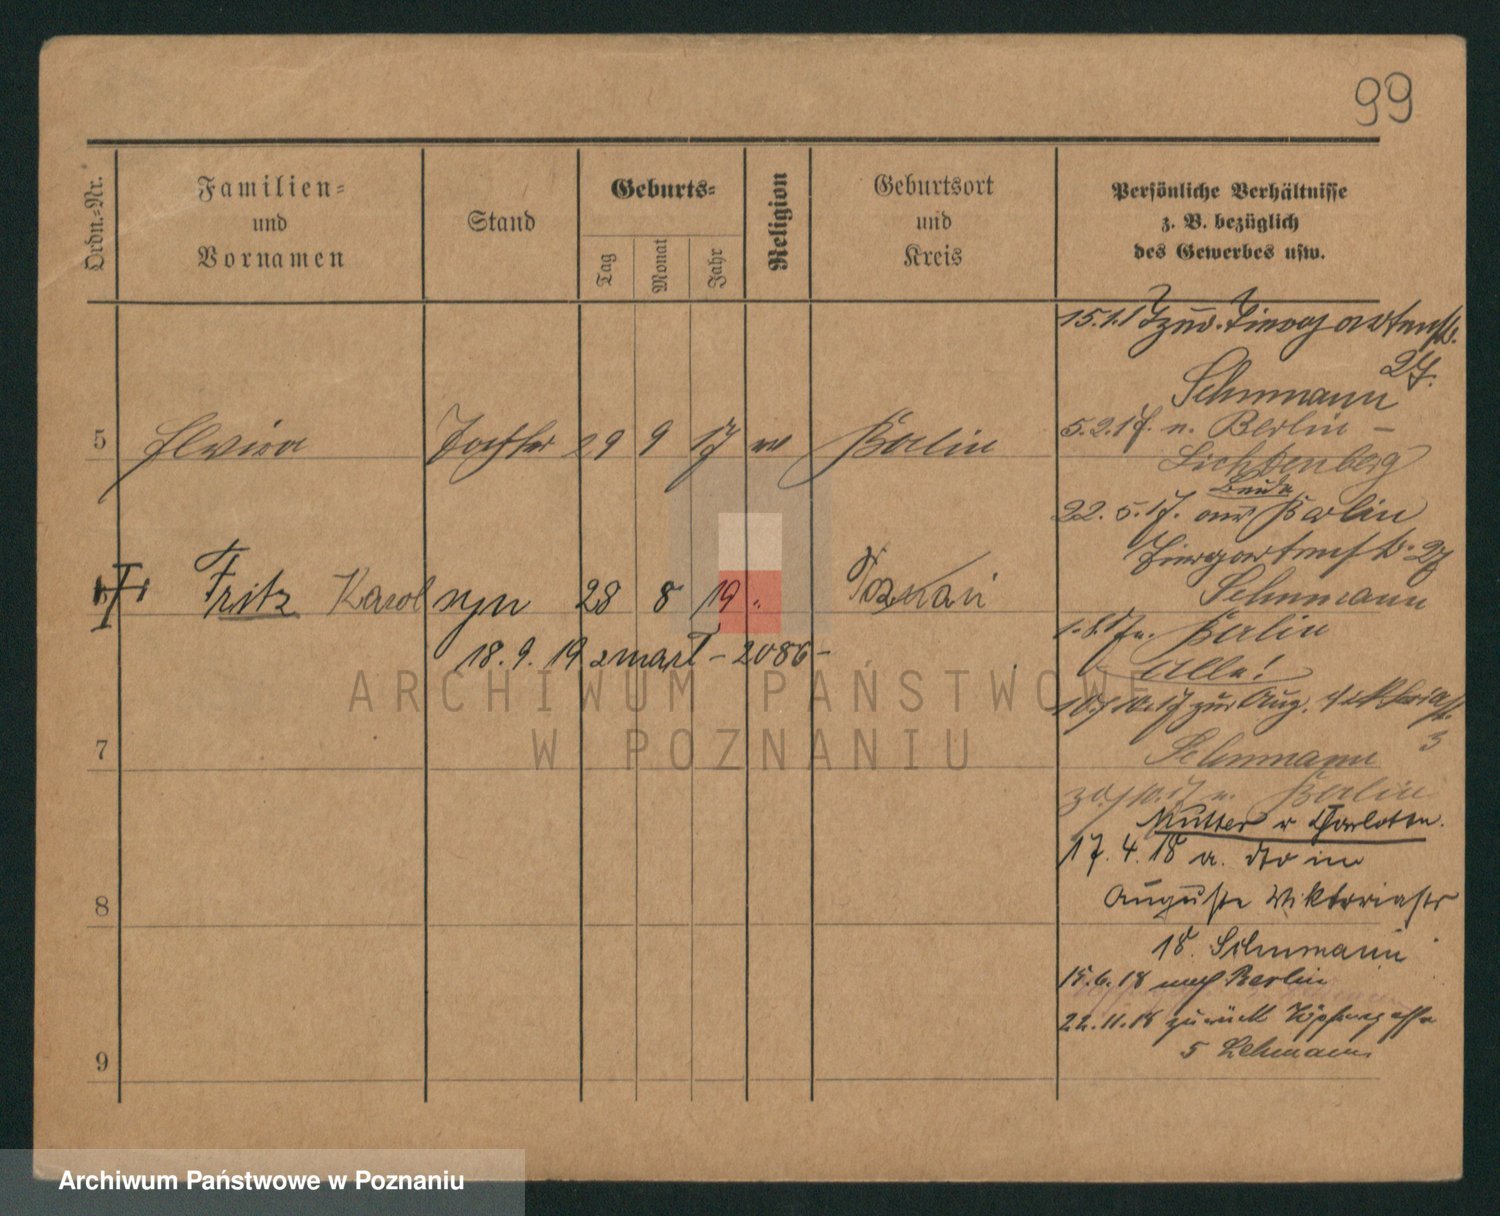 99
Ordn.-Nr.
Familien-
und
Vornamen
Stand
Geburts-
Tag
Monat
Jahr
Religion
Geburtsort
und
Kreis
Persönliche Verhältnisse
z. B. bezüglich
des Gewerbes usw.
15.1.17 zur. Tiergartenstr.
27.
Schumann
5 Elvira Tochter 29 9 17 Berlin
5.2.17. n. Berlin -
Lichtenberg
Beide
22.5.17. aus Berlin
Tiergartenstr. 27
Schumann
Fritz Karol syn 28 8 19 " Poznań
18.9.19 zmarł - 2086 -
n. Berlin
Alle!
zur Aug. Viktoriastr.
3
7
Schumann
n. Berlin
Mutter v Charlotten.
17.4.18 a. dto in
Auguste Viktoriastr
8
18. Schumann
15.6.18 nach Berlin
22.11.18 zurück Töpfergasse
5 Lehmann
9
ARCHIWUM PAŃSTWOWE
W POZNANIU
Archiwum Państwowe w Poznaniu